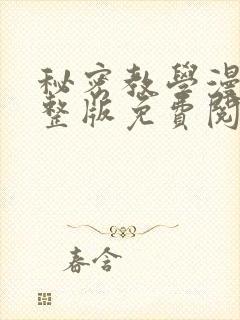 秘密教學漫
整版免費閱
春含